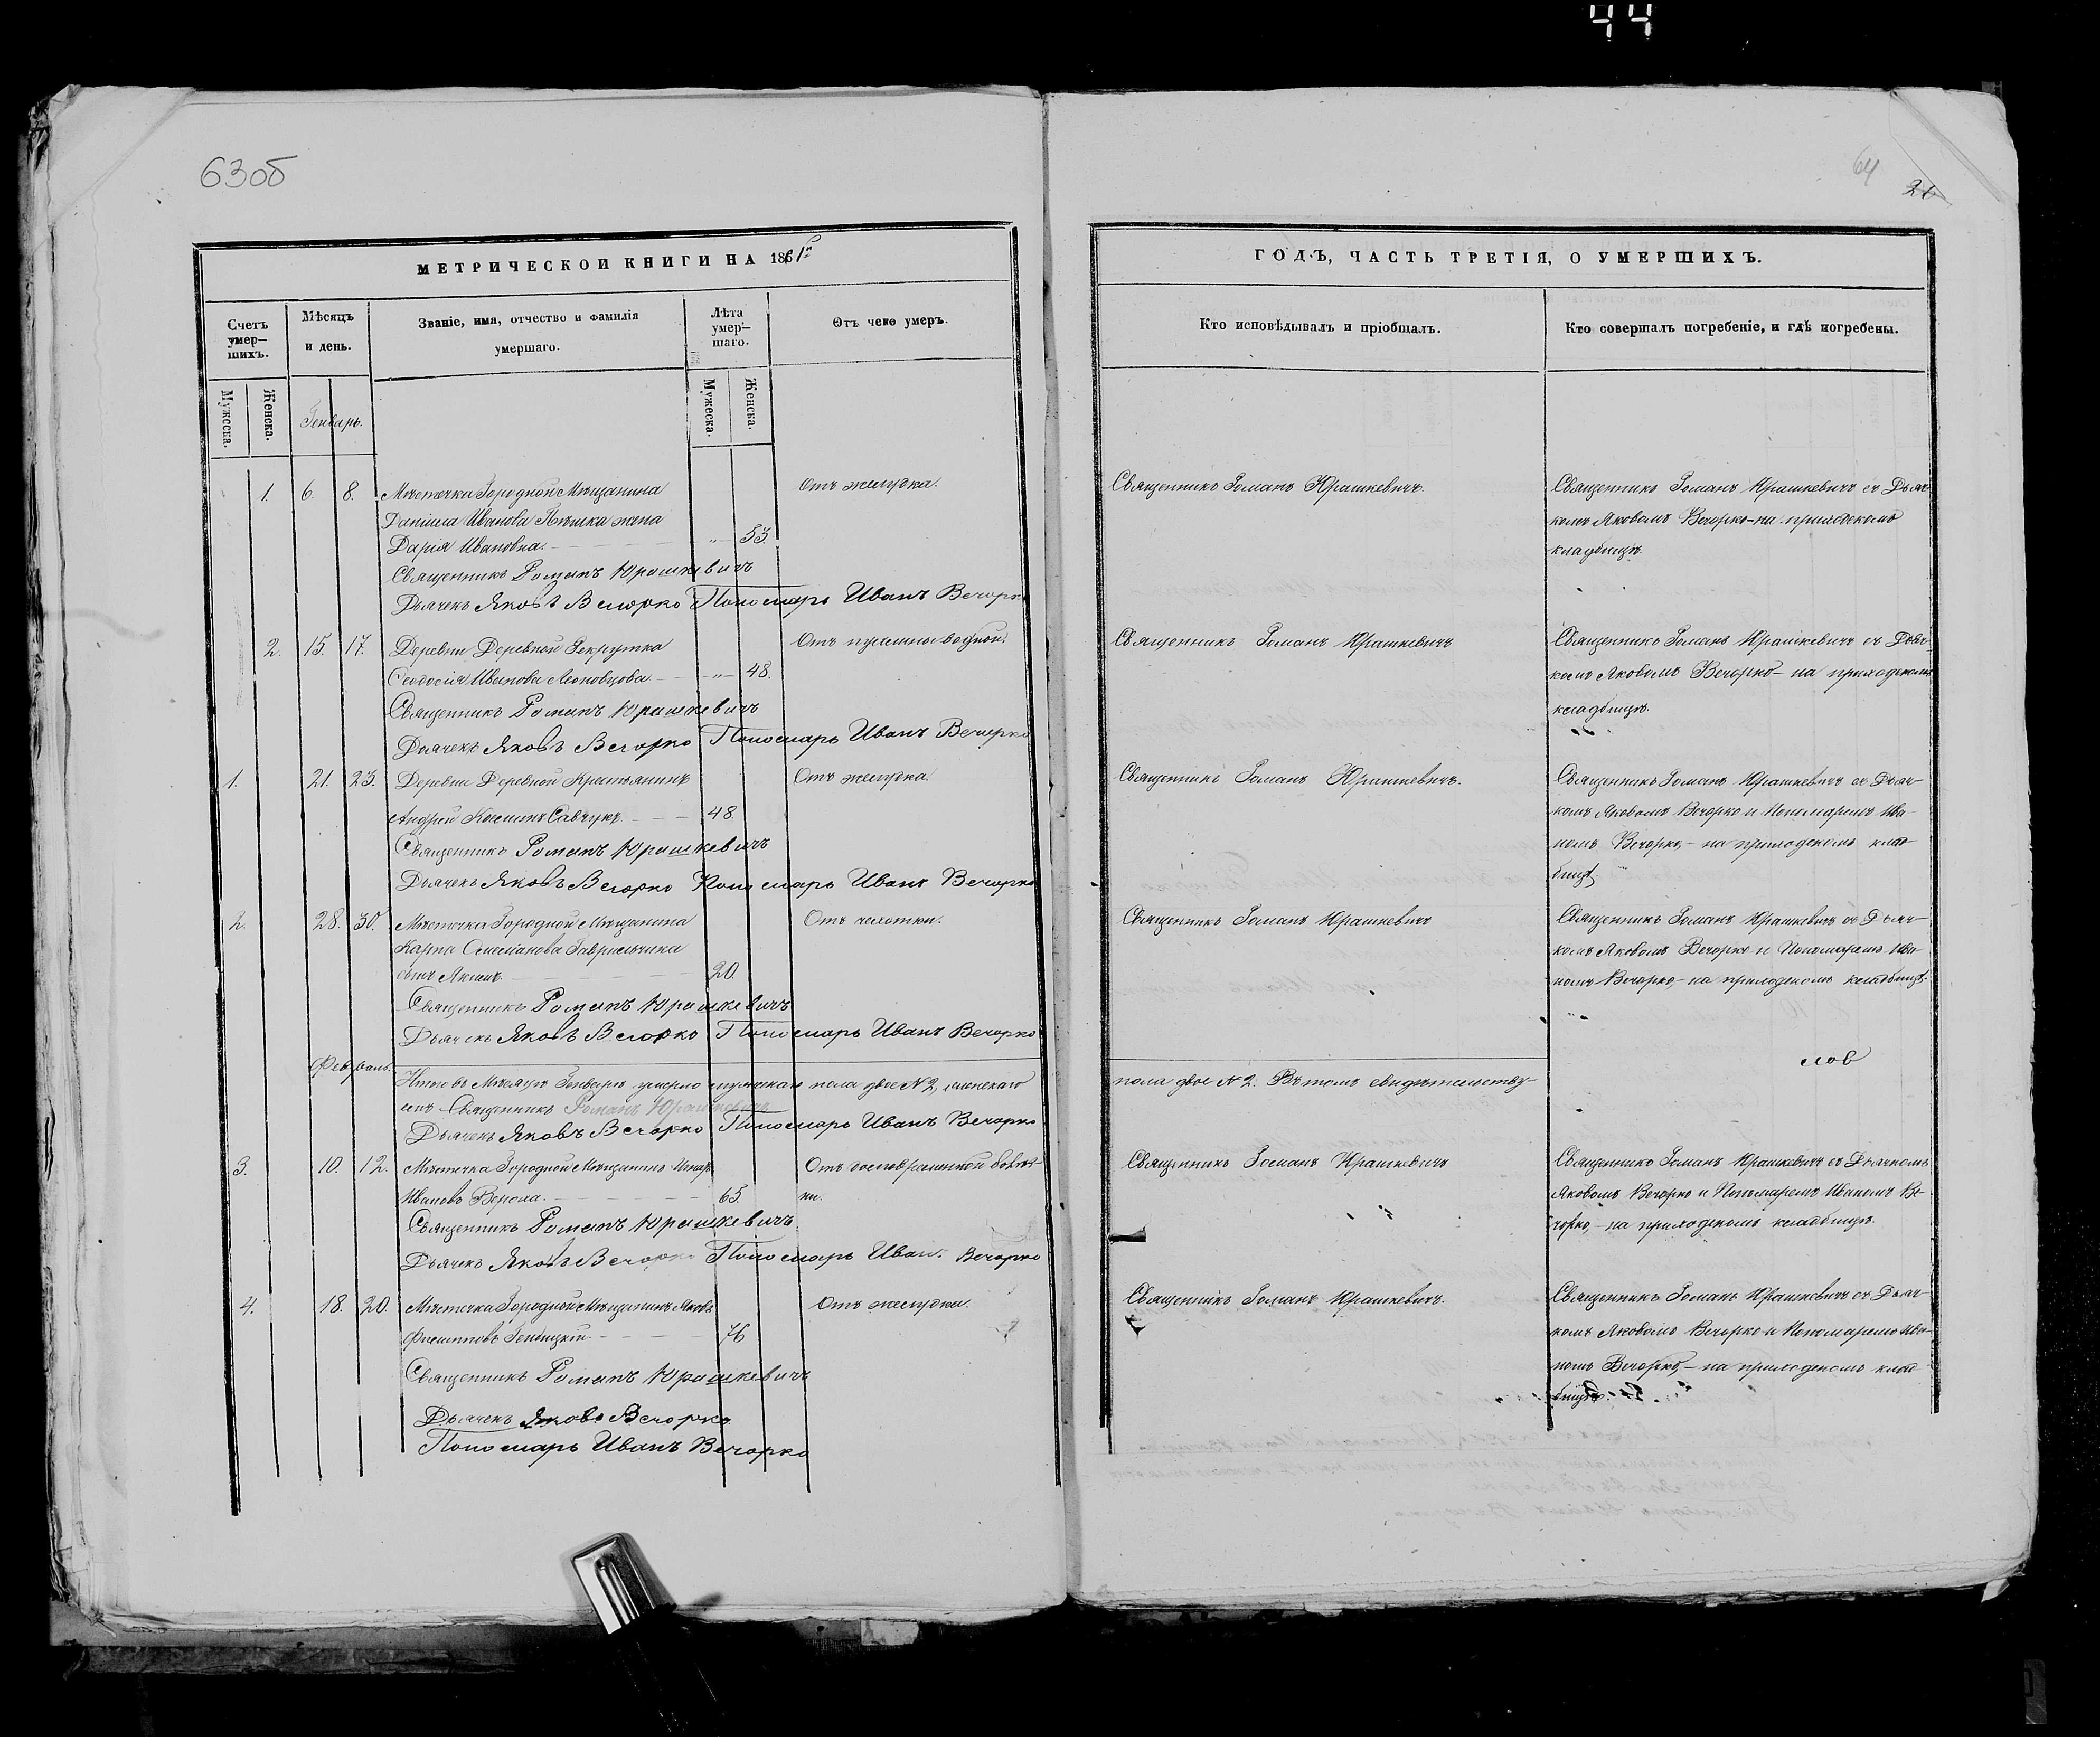 44
63об
64
26
МЕТРИЧЕСКОЙ КНИГИ НА 1861й
Счетъ умер-шихъ.
Мѣсяцъ и день.
Званіе, имя, отчество и фамилія умершаго.
Лѣта умер-шаго.
Отъ чего умеръ.
Мужеска.
Женска.
Мужеска.
Женска.
Генварь.
1. 6. 8. Мѣстечка Городной Мѣщанина Отъ желудка.
Даніила Иванова жена
Дарія Ивановна. „ 53.
Священникъ Романъ Юрашкевичъ
Дьячекъ Яковъ Вечорко Пономарь Иванъ Вечорко
2. 15. 17. Деревни Деревной Рекрутка Отъ водной.
Ѳеодосія Иванова „ 48.
Священникъ Романъ Юрашкевичъ
Дьячекъ Яковъ Вечорко Пономарь Иванъ Вечорко
1. 21. 23. Деревни Деревной Крестьянинъ Отъ желудка.
Андрей Савчукъ. 48
Священникъ Романъ Юрашкевичъ
Дьячекъ Яковъ Вечорко Пономарь Иванъ Вечорко
2. 28. 30. Мѣстечка Городной Мѣщанина Отъ чахотки.
Карпа Гаврильчика
сынъ 20.
Священникъ Романъ Юрашкевичъ
Дьячекъ Яковъ Вечорко Пономарь Иванъ Вечорко
Февраль.
Итого въ Мѣсяцѣ Генварѣ умерло мужескаго пола двое №2, женскаго
емъ Священникъ Романъ Юрашкевичъ
Дьячекъ Яковъ Вечорко Пономарь Иванъ Вечорко
3. 10. 12. Мѣстечка Городной Мѣщанинъ Отъ
Ивановъ 65. ни.
Священникъ Романъ Юрашкевичъ
Дьячекъ Яковъ Вечорко Пономарь Иванъ Вечорко
4. 18. 20. Мѣстечка Городной Мѣщанинъ Яковъ Отъ желудка.
Филиповъ 76
Священникъ Романъ Юрашкевичъ
Дьячекъ Яковъ Вечорко
Пономарь Иванъ Вечорко
ГОДЪ, ЧАСТЬ ТРЕТІЯ, О УМЕРШИХЪ.
Кто исповѣдывалъ и пріобщалъ.
Кто совершалъ погребеніе, и гдѣ погребены.
Священникъ Романъ Юрашкевичъ. Священникъ Романъ Юрашкевичъ съ Дьяч-
комъ Яковомъ Вечорко - на приходскомъ
кладбищѣ.
Священникъ Романъ Юрашкевичъ Священникъ Романъ Юрашкевичъ съ Дьяч-
комъ Яковомъ Вечорко - на приходскомъ
кладбищѣ.
Священникъ Романъ Юрашкевичъ. Священникъ Романъ Юрашкевичъ съ Дьяч-
комъ Яковомъ Вечорко и Пономаремъ Ива-
номъ Вечорко, - на приходскомъ клад-
бищѣ.
Священникъ Романъ Юрашкевичъ Священникъ Романъ Юрашкевичъ съ Дьяч-
комъ Яковомъ Вечорко и Пономаремъ Ива-
номъ Вечорко, - на приходскомъ кладбищѣ.
пола двое №2. Въ томъ свидѣтельству-
Священникъ Романъ Юрашкевичъ Священникъ Романъ Юрашкевичъ съ Дьячкомъ
Яковомъ Вечорко и Пономаремъ Иваномъ Ве-
чорко, - на приходскомъ кладбищѣ.
Священникъ Романъ Юрашкевичъ. Священникъ Романъ Юрашкевичъ съ Дьяч-
комъ Яковомъ Вечорко и Пономаремъ Ива-
номъ Вечорко, - на приходскомъ клад-
бищѣ.